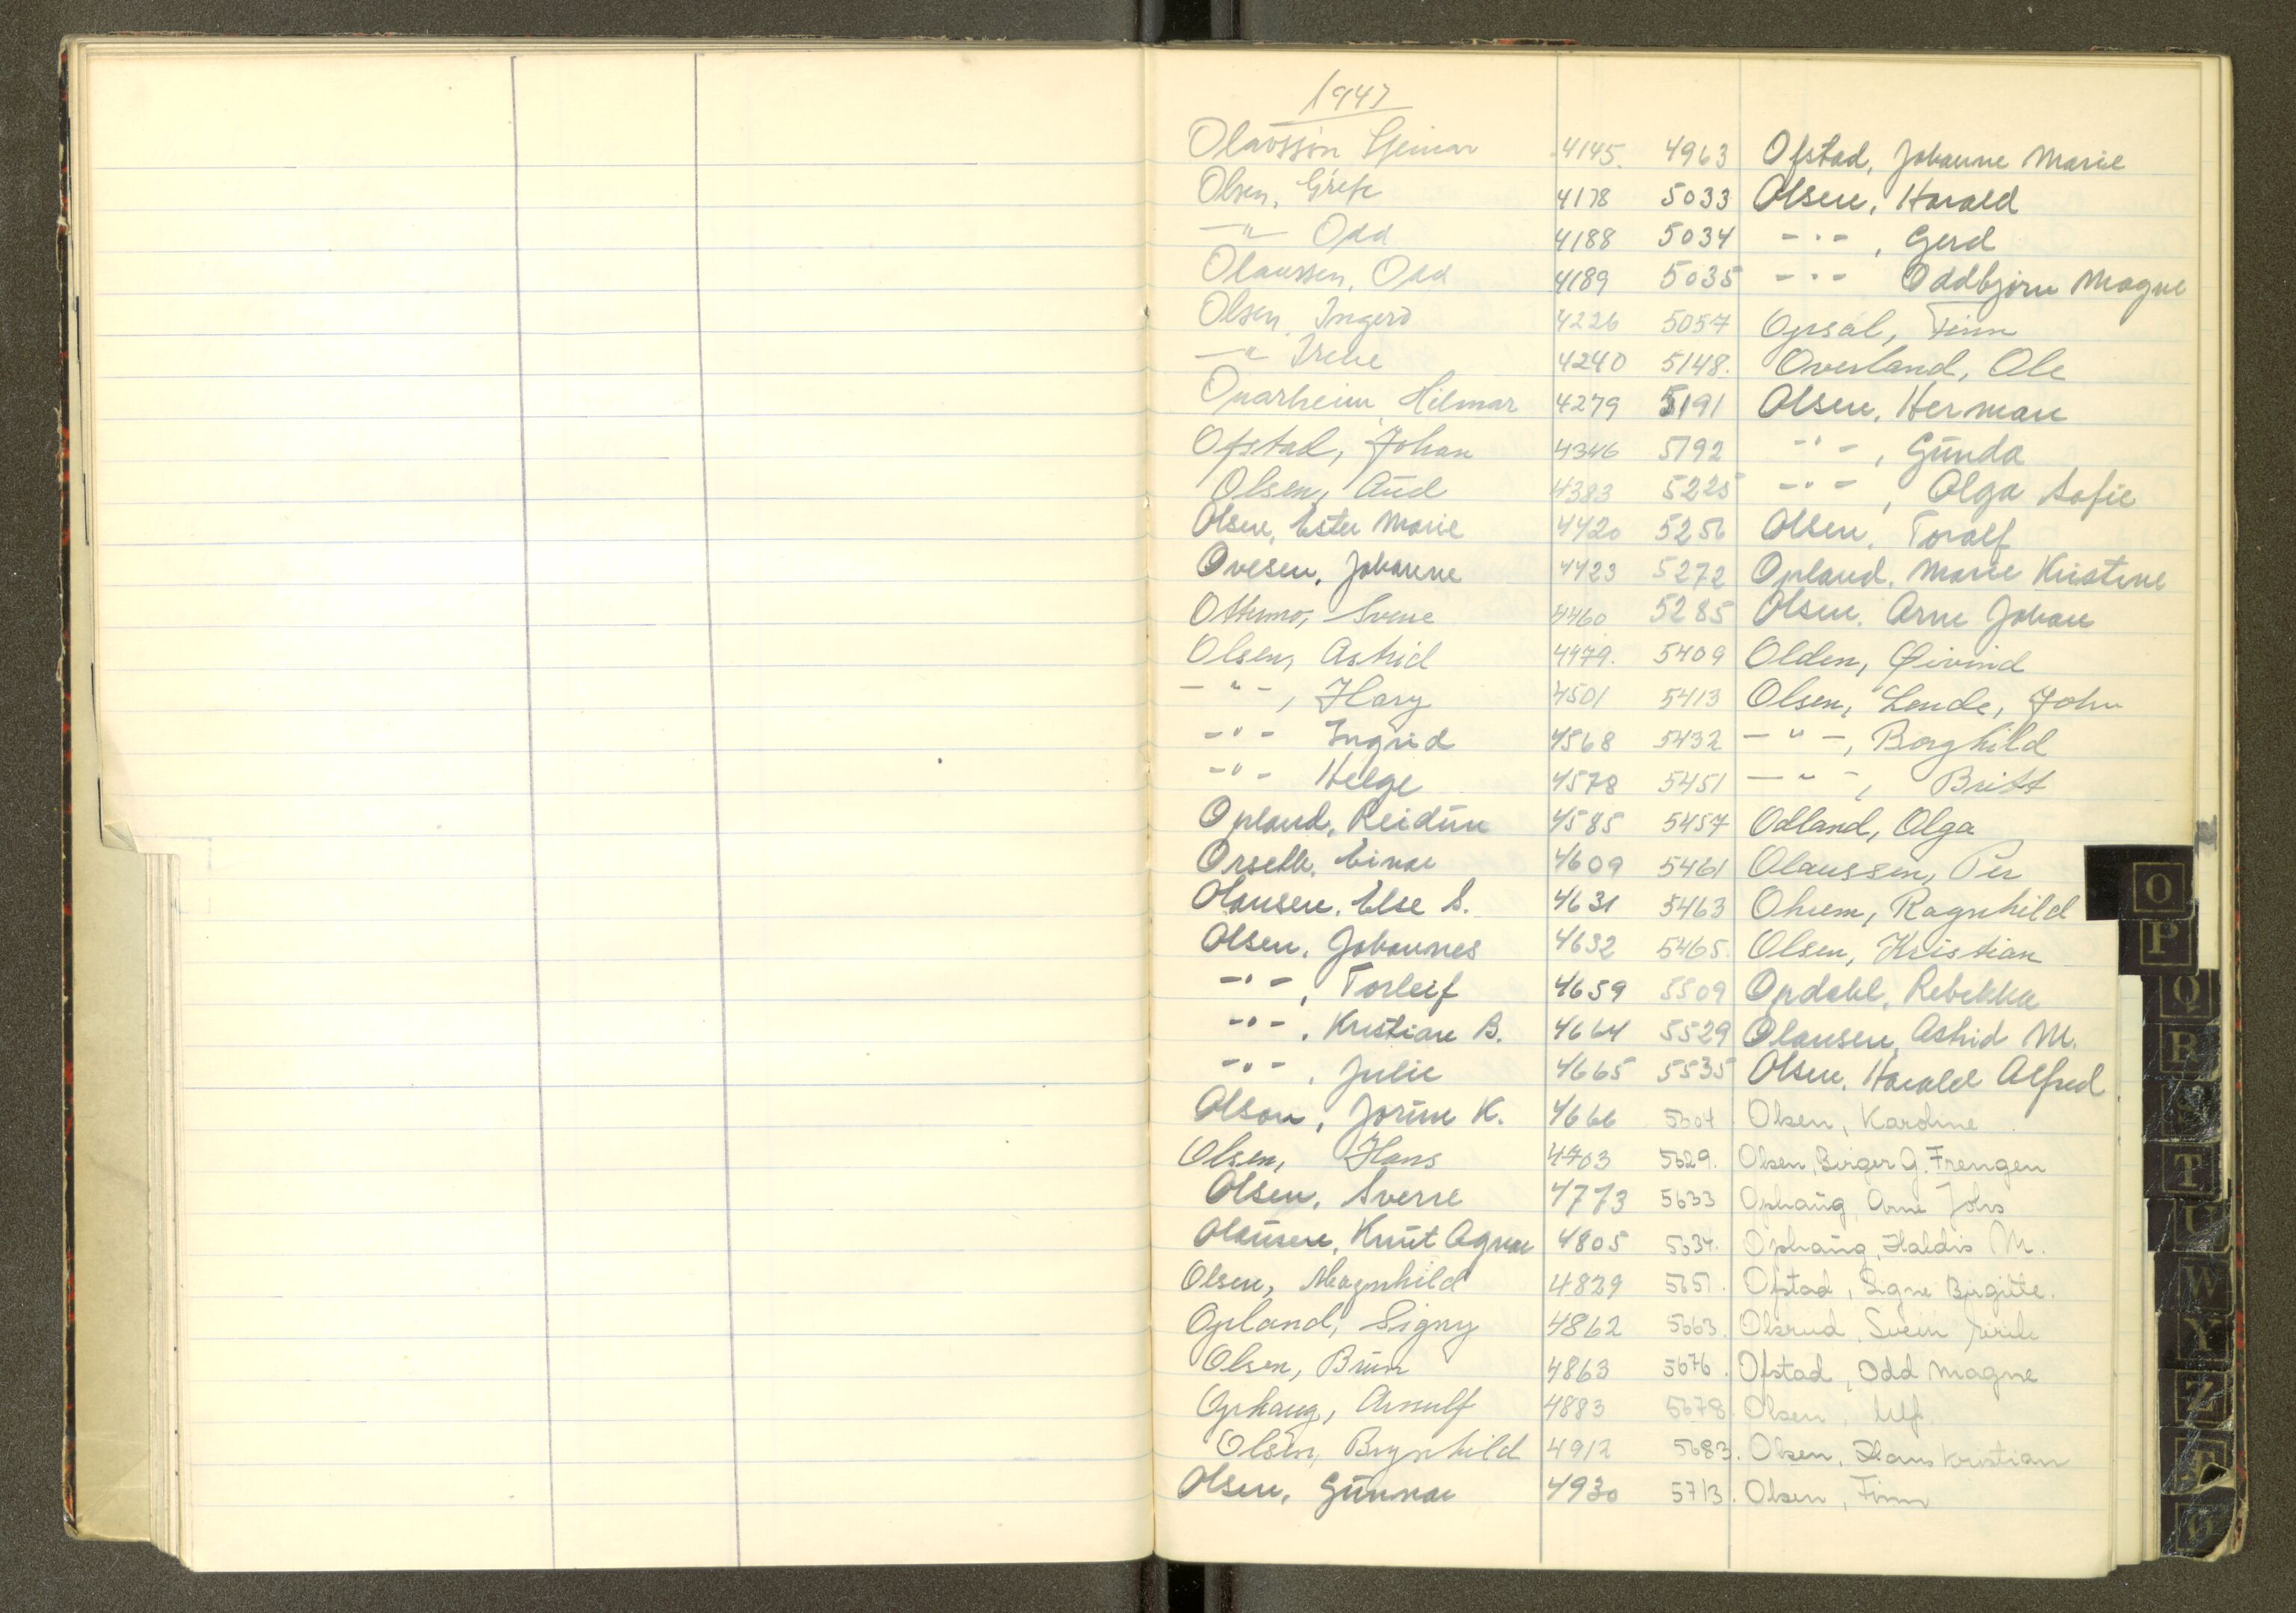 1947
Olavsson 4145. 4963 Ofstad, Johanne Marie
Olsen, Grete 4178 5033 Olsen, Harald
—"— Odd 4188 5034 -"-, Gerd
Olaussen, Odd 4189 5035 -"- Oddbjørn Magne
Olsen, Ingerd 4226 5057 Opsal, Finn
—"— Irene 4240 5148. Overland, Ole
Hilmar 4279 5191 Olsen, Herman
Ofstad, Johan 4346 5192 -"-, Gunda
Olsen, Aud 4383 5225 -"-, Olga Sofie
Olsen, Ester Marie 4420 5256 Olsen, Toralf
Ovesen, Johanne 4423 5272 Opland, Marie Kristine
Ottermo, Svene 4460 5285 Olsen, Arne Johan
Olsen, Astrid 4479. 5409 Olden, Øivind
-"-, Hary 4501 5413 Olsen, Lende, John
-"- Ingrid 4568 5432 -"-, Borghild
-"- Helge 4578 5451 -"-, Britt
Opland, Reidun 4585 5457 Odland, Olga
Orseth, Einar 4609 5461 Olaussen, Per
Olausen, Else S. 4631 5463 Ohrem, Ragnhild
Olsen, Johannes 4632 5465. Olsen, Kristian
-"-, Torleif 4659 5509 Opdahl, Rebekka
-"-, Kristian B. 4664 5529 Olausen, Astrid M.
-"-, Julie 4665 5535 Olsen, Harald Alfred
Olson, Jorun K. 4666 5604 Olsen, Karoline
Olsen, Hans 4703 5629. Olsen, Birger G. Frengen
Olsen, Sverre 4773 5633 Ophaug, Arne Johs
Olausen, Knut Agnar 4805 5634. Ophaug, Haldis M.
Olsen, Magnhild 4829 5651. Ofstad, Signe Birgitte.
Opland, Signy 4862 5663. Olsrud, Svein
Olsen, Brun 4863 5676. Ofstad, Odd Magne
Ophaug, Arnulf 4883 5678. Olsen, Ulf.
Olsen, Brynhild 4912 5683. Olsen, Hans Kristian
Olsen, Gunnar 4930 5713. Olsen, Finn
O
P
Q
R
S
T
U
W
Y
Z
Æ
Ø